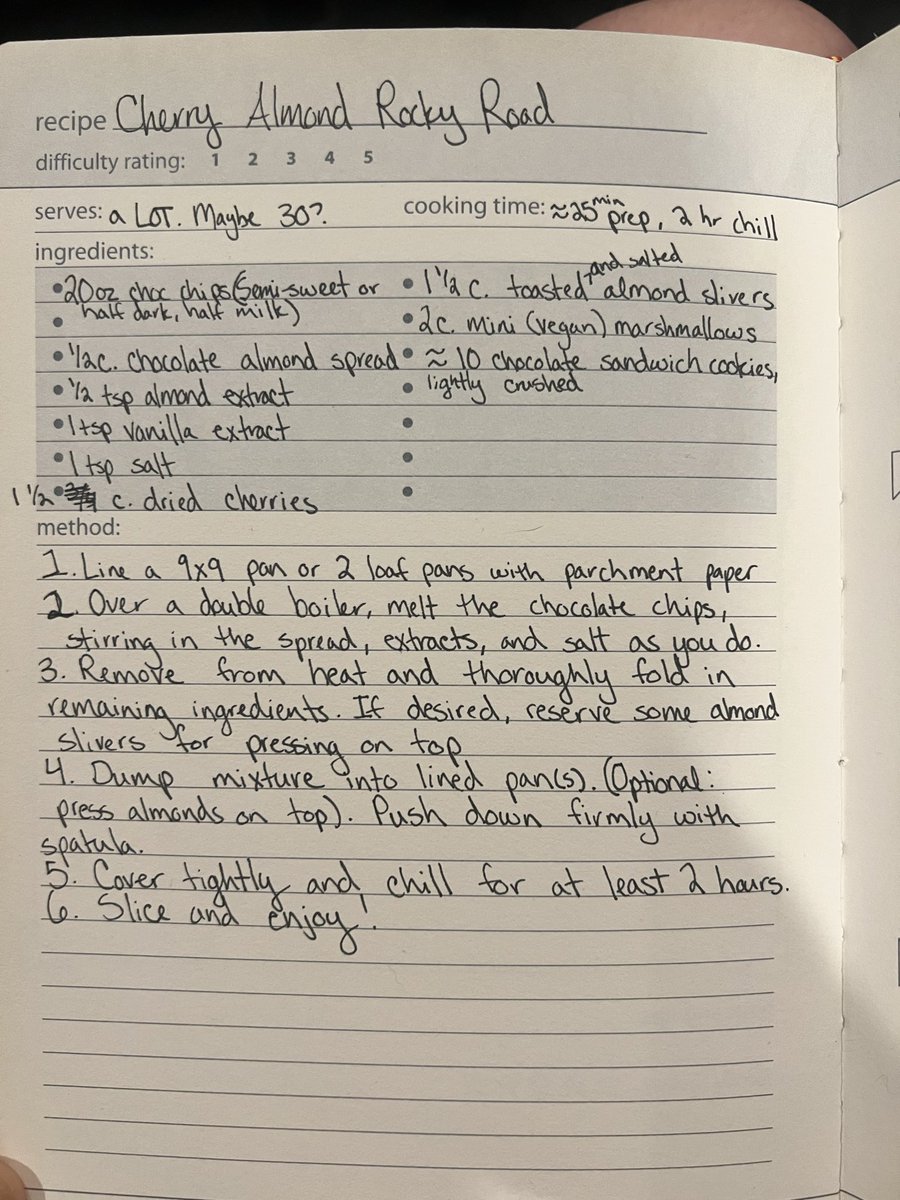 recipe Cherry Almond Rocky Road
difficulty rating: 1 2 3 4 5
serves: a LOT. Maybe 30?
cooking time: ≈25 min prep, 2 hr chill
ingredients:
•20oz choc chips (Semi-sweet or
• half dark, half milk)
•1/2c. chocolate almond spread
•1/2 tsp almond extract
•1 tsp vanilla extract
•1 tsp salt
1 1/2 • c. dried cherries
• 1 1/2 c. toasted and salted almond slivers
•2c. mini (vegan) marshmallows
• ≈ 10 chocolate sandwich cookies,
• lightly crushed
•
•
•
method:
1. Line a 9x9 pan or 2 loaf pans with parchment paper
2. Over a double boiler, melt the chocolate chips,
stirring in the spread, extracts, and salt as you do.
3. Remove from heat and thoroughly fold in
remaining ingredients. If desired, reserve some almond
slivers for pressing on top
4. Dump mixture into lined pan(s). (Optional:
press almonds on top). Push down firmly with
spatula.
5. Cover tightly and chill for at least 2 hours.
6. Slice and enjoy!